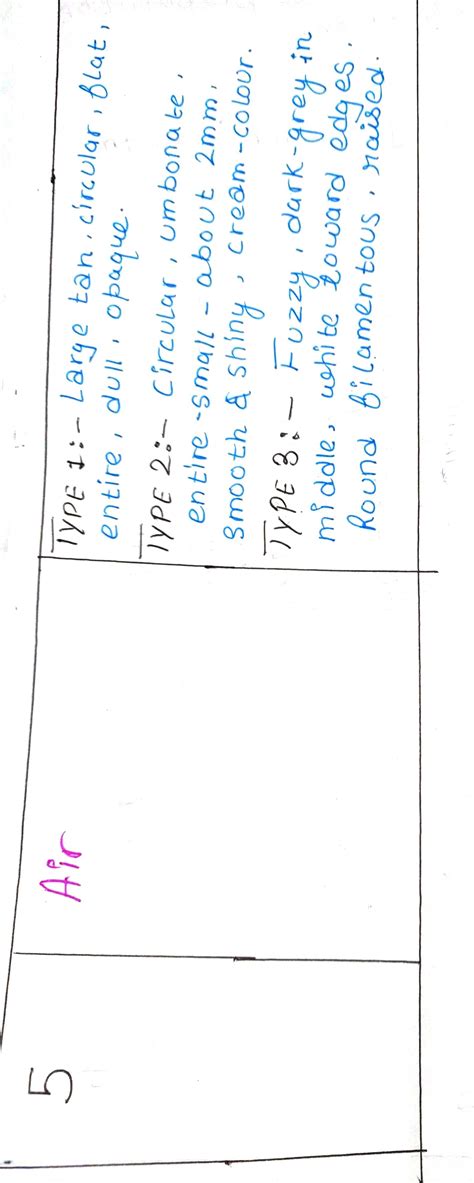 5
Air
TYPE 1:- Large tan, circular, flat,
entire, dull, opaque.
TYPE 2:- Circular, umbonate,
entire-small-about 2mm,
smooth & shiny, cream-colour.
TYPE 3:- Fuzzy, dark-grey in
middle, white toward edges.
Round filamentous, raised.